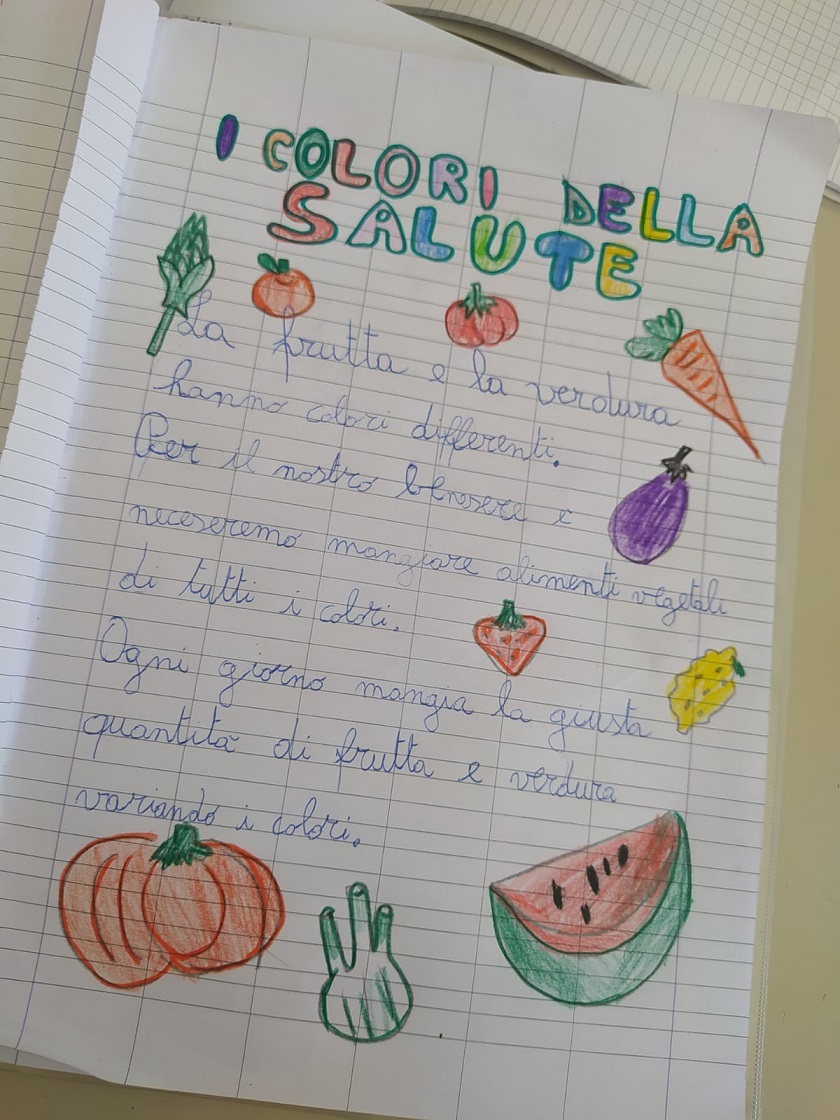 I COLORI DELLA
SALUTE
La frutta e la verdura
hanno colori differenti.
Per il nostro benesere e
neceseremo mangiare alimenti vegetali
di tutti i colori.
Ogni giorno mangia la giusta
quantità di frutta e verdura
variando i colori.